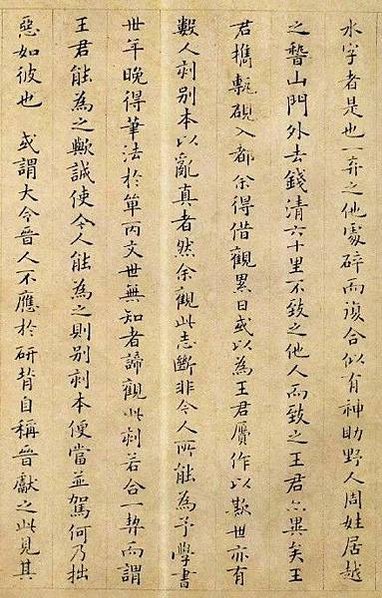 水字者是也一弃之他處碎而復合似有神助野人周姓居越
之稽山門外去錢清六十里不致之他人而致之王君六異矣王
君攜甎硯入都余得借觀累日或以為王君贋作以欺世亦有
數人刻別本以亂真者然余觀此志斷非今人所能為予學書
丗年晚得筆法於單丙文世無知者諦觀此刻若合一契而謂
王君能為之歟誠使今人能為之則別刻本便當並駕何乃拙
惡如彼也　或謂大令晉人不應於研背自稱晉獻之此見其